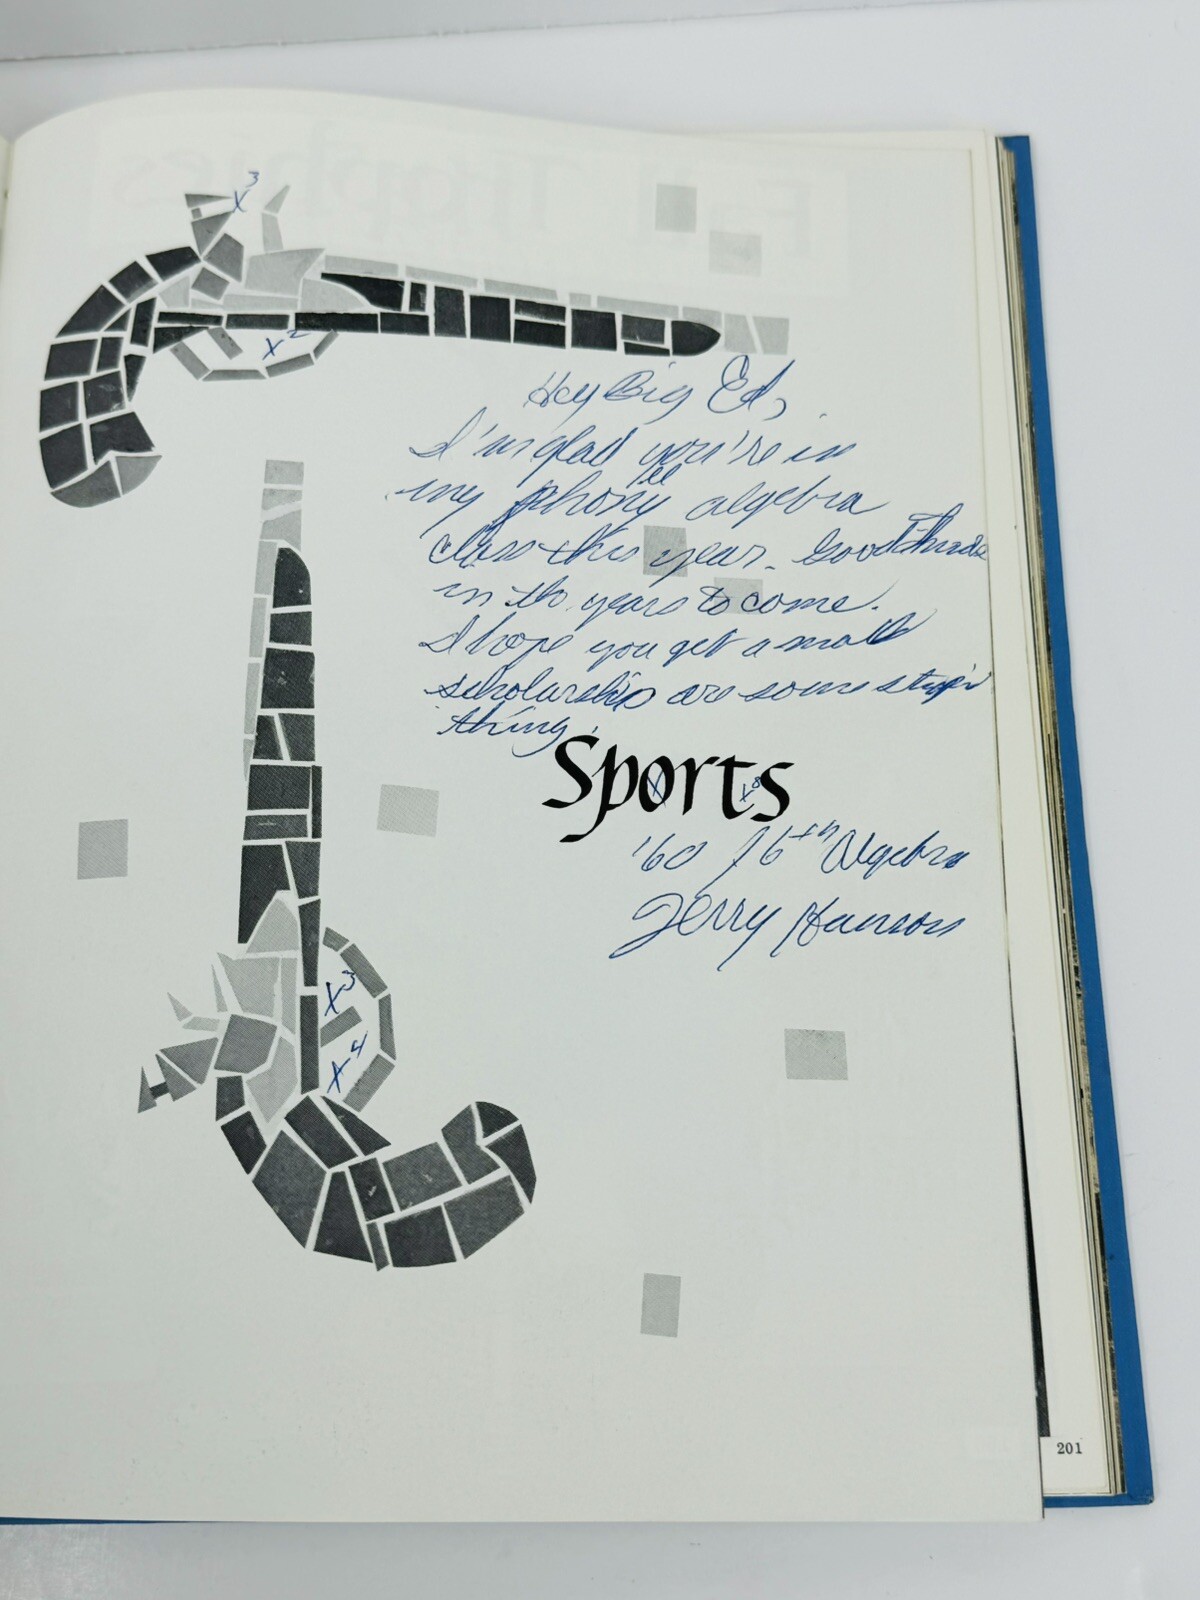 x³
x²
Hey Big Ed,
I'm glad you're in
my phony ell algebra
class this year. Good
in th. years to come.
I hope you get a math
scholarship are some
thing.
Sports
x x⁸
'60 6th Algebra
Jerry Hanson
x³
x⁴
201